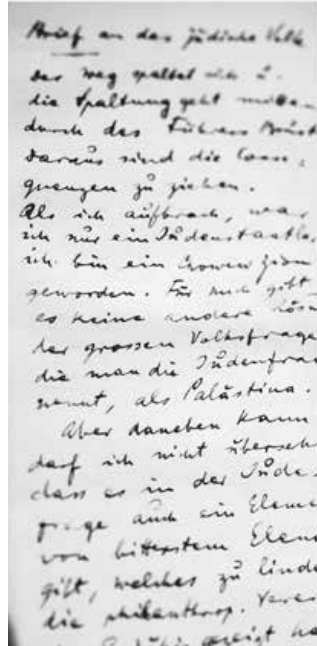 Brief an das jüdische Volk
Der Weg spaltet sich u.
die Spaltung geht mitten
durch des Führers Brust
daraus sind die Conse-
quenzen zu ziehen.
Als ich aufbrach, war
ich nur ein Judenstaatler
ich bin ein Chowew Zion
geworden. Für mich gibt
es keine andere Lösu
der grossen Volksfrage
die man die Judenfrag
nennt, als Palästina.
Aber daneben kann
darf ich nicht überseh
dass es in der Jude
frage auch ein Eleme
von bitterstem Elend
gibt, welches zu linde
die philanthrop. Verei
gezeigt ha